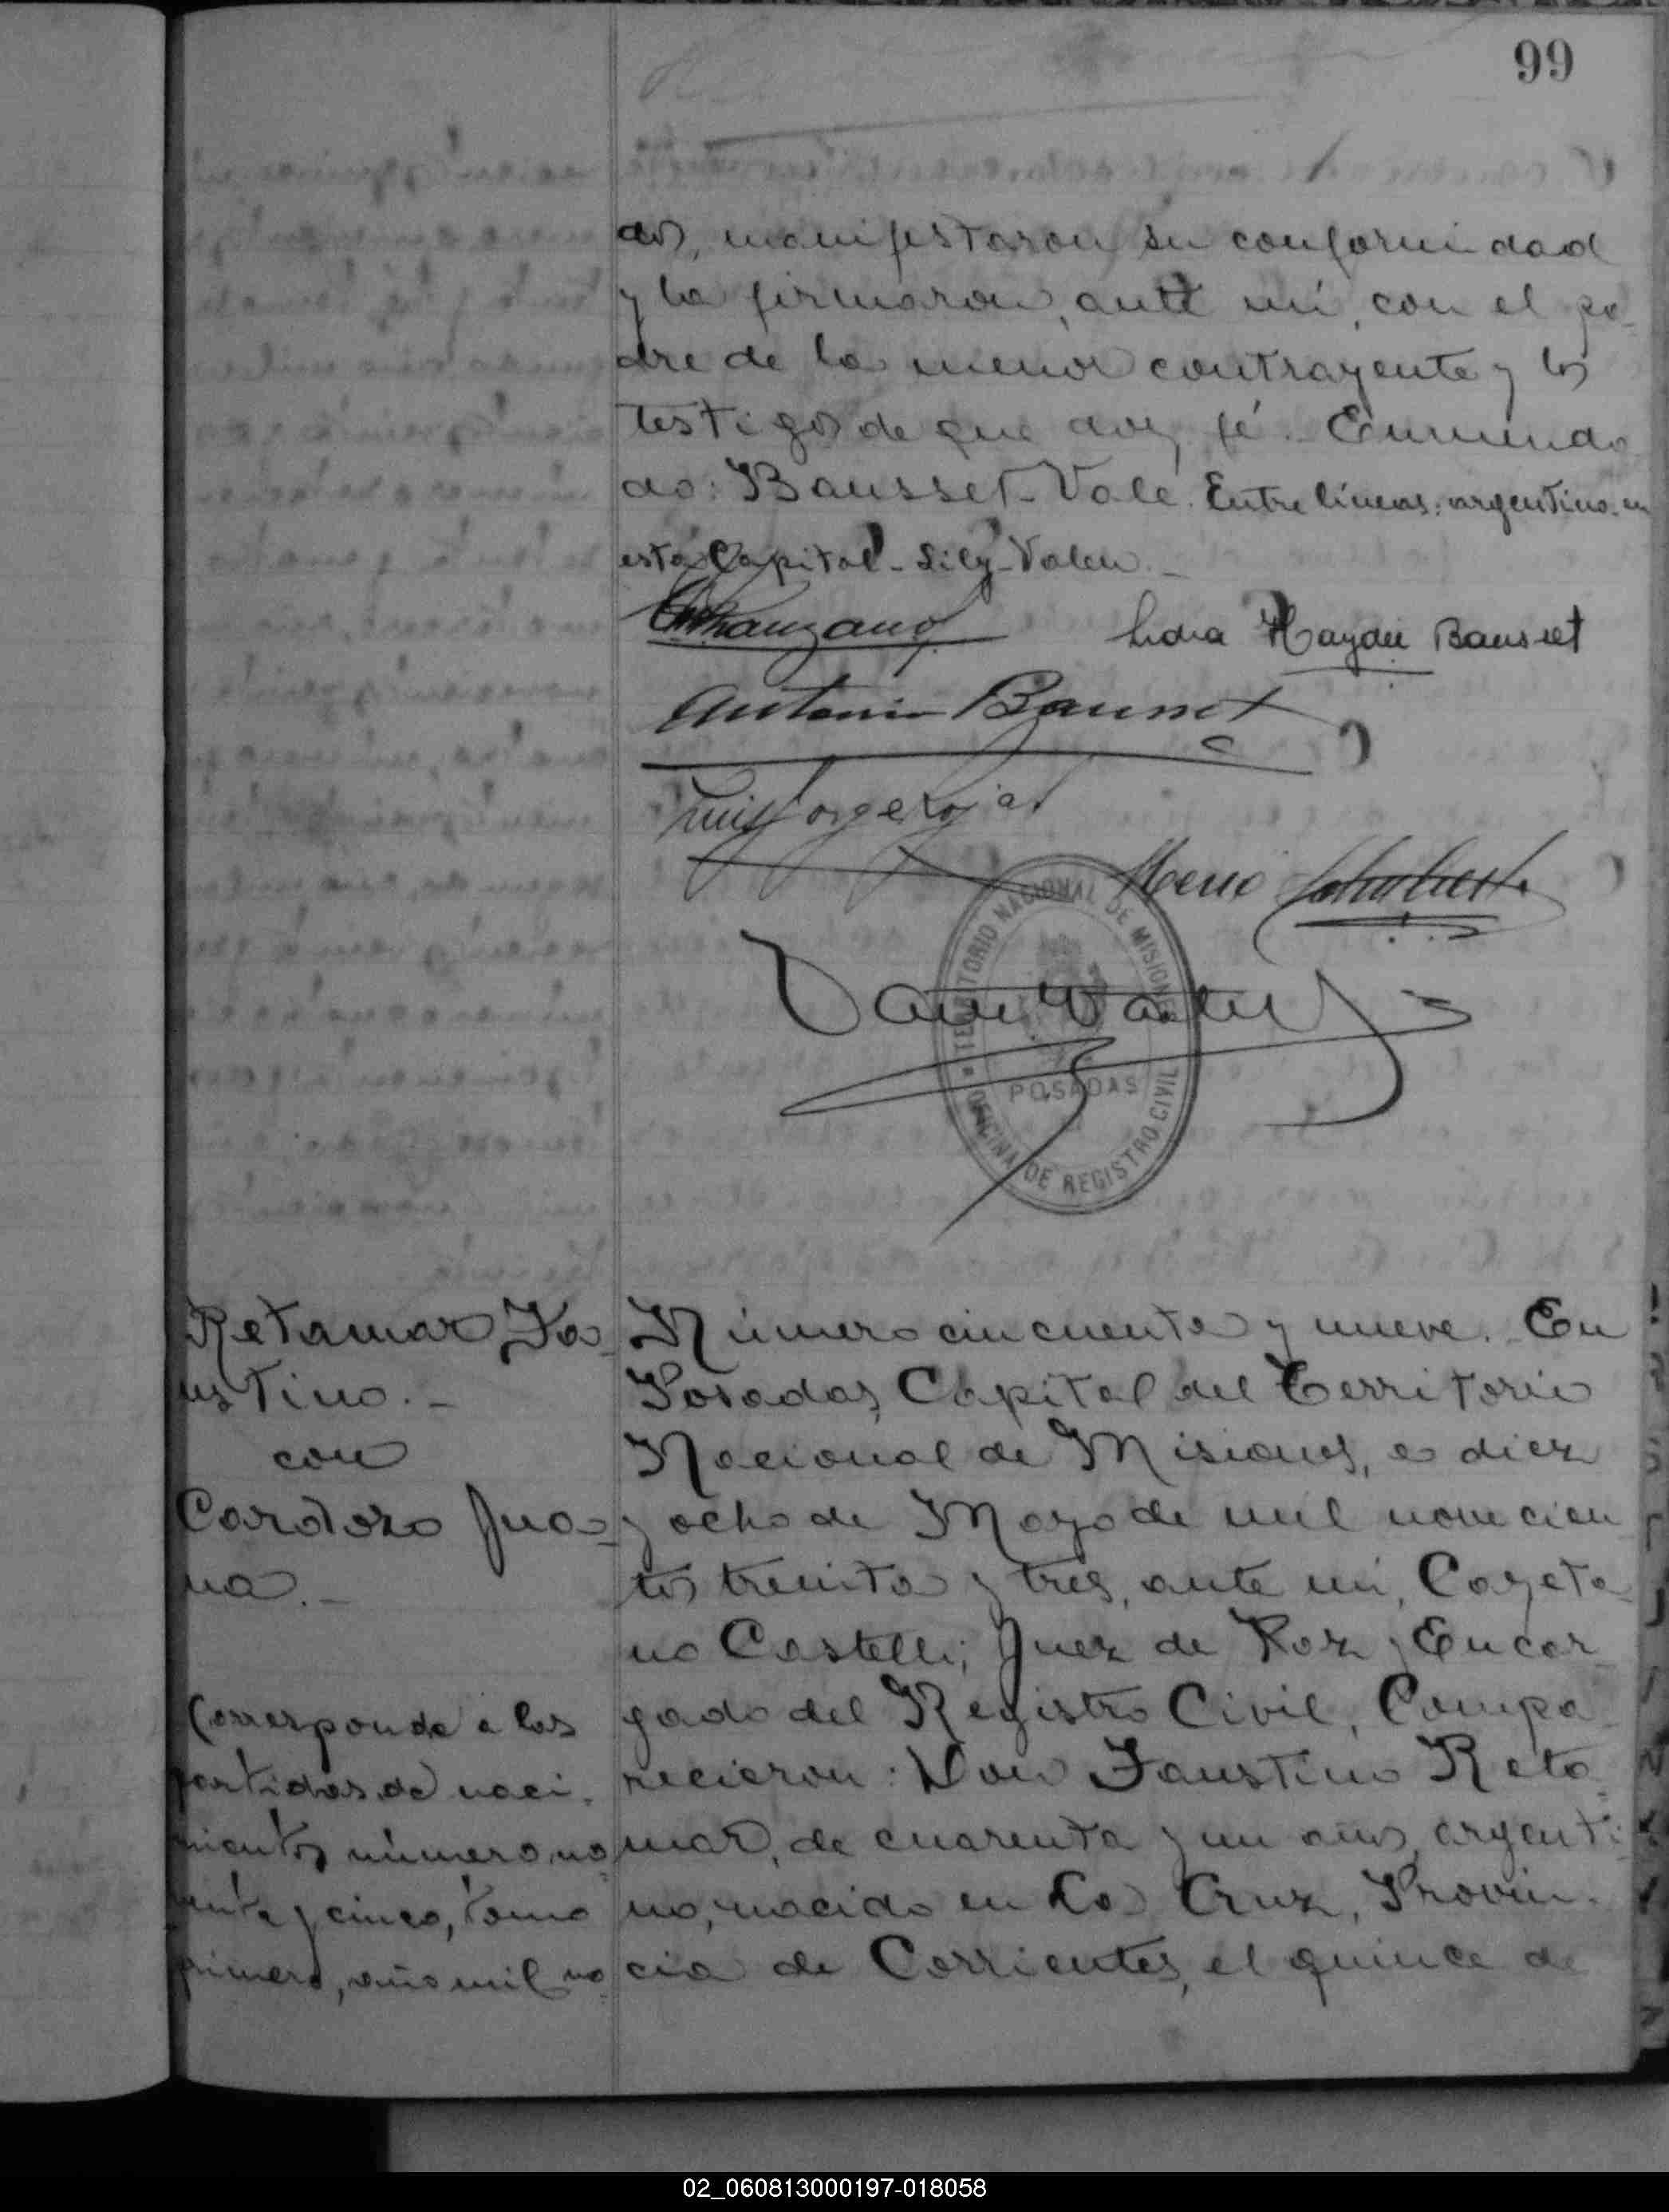 99
dos, manifestaron su conformidad
y la firmaron, ante mí, con el pa-
dre de la menor contrayente y los
testigos de que doy fé. Enmenda-
do: Bausset-Vale. Entre líneas: argentino-en
esta Capital-Lily-Valen.-
Lidia Haydeé Bausset
Antonio Bausset
Luis Jorge Rojas
TERRITORIO NACIONAL DE MISIONES
POSADAS
OFICINA DE REGISTRO CIVIL
Retamar Fa-
ustino.-
con
Cardozo Jua-
na.-
Corresponde a las
partidas de naci-
mientos número no-
venta y cinco, tomo
primero, año mil no-
Número cincuenta y nueve. En
Posadas, Capital del Territorio
Nacional de Misiones, a diez
y ocho de Mayo de mil novecien-
tos treinta y tres, ante mí, Cayeta-
no Castelli, Juez de Paz y Encar-
gado del Registro Civil, Compa-
recieron: Don Faustino Reta-
mar, de cuarenta y un años, argenti-
no, nacido en La Cruz, Provin-
cia de Corrientes, el quince de
02_060813000197-018058